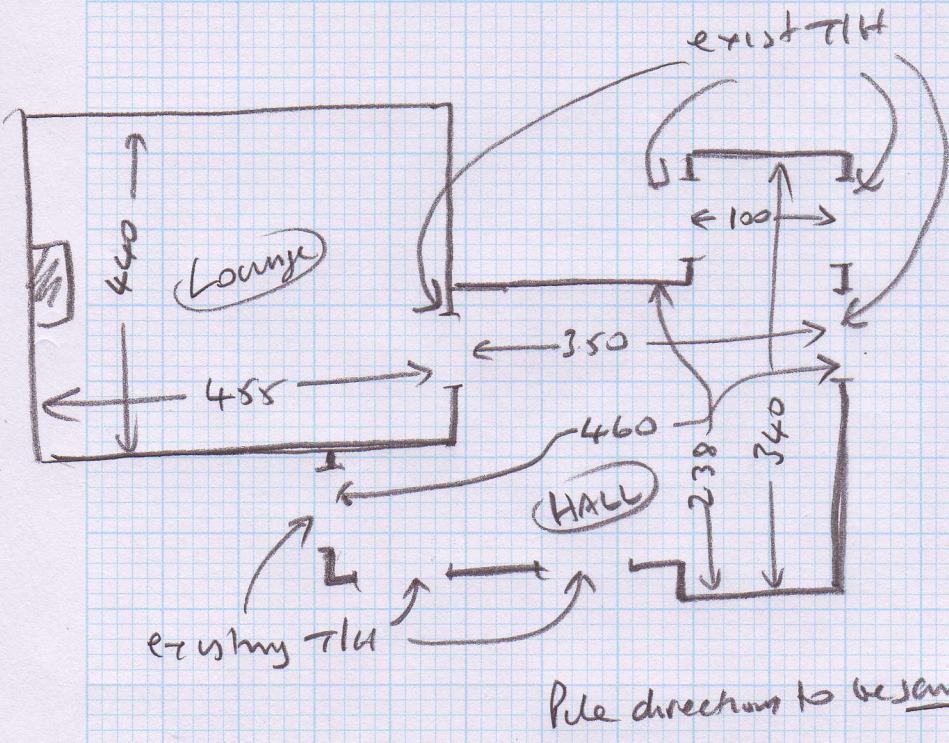 exist T/H
100
440
Lounge
350
455
460
238
340
HALL
existing T/H
Pile direction to be